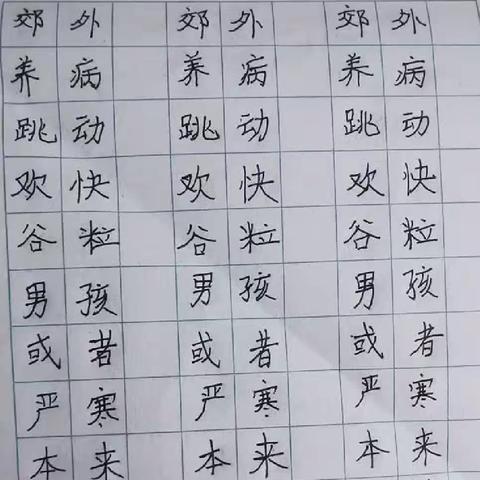 郊外 郊外 郊外
养病 养病 养病
跳动 跳动 跳动
欢快 欢快 欢快
谷粒 谷粒 谷粒
男孩 男孩 男孩
或者 或者 或者
严寒 严寒 严寒
本来 本来 本来